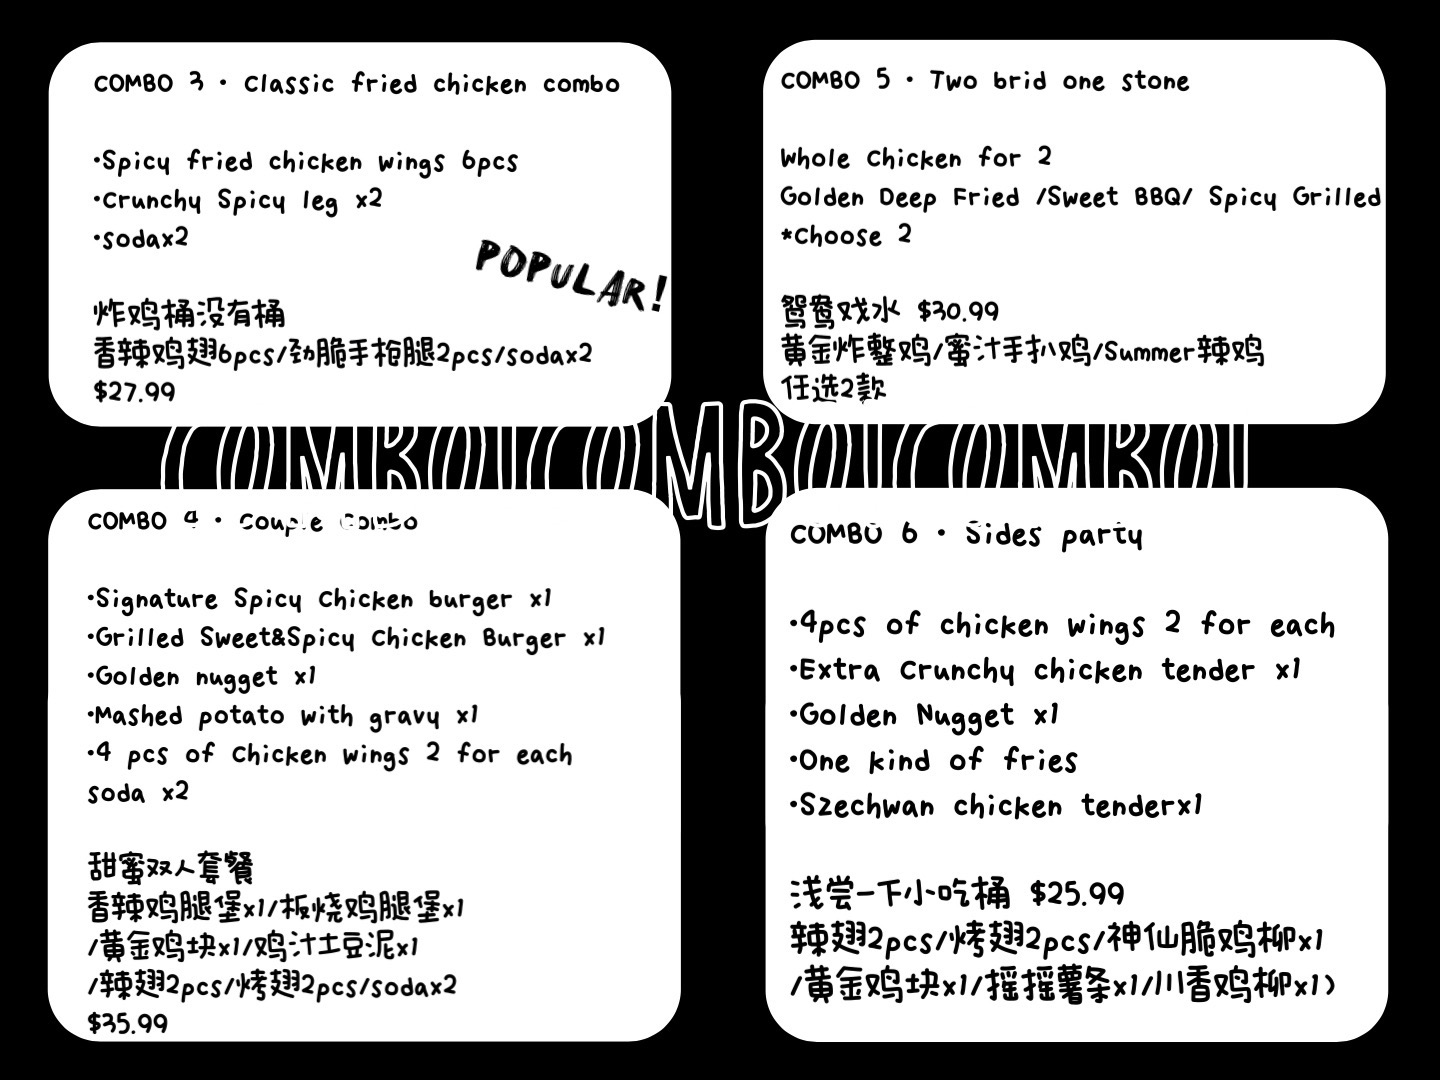 COMBO 3 · Classic fried chicken combo
·Spicy fried chicken wings 6pcs
·Crunchy Spicy leg x2
·sodax2
POPULAR!
炸鸡桶没有桶
香辣鸡翅6pcs/劲脆手枪腿2pcs/sodax2
$27.99
COMBO 5 · Two brid one stone
Whole Chicken for 2
Golden Deep Fried /Sweet BBQ/ Spicy Grilled
*Choose 2
鸳鸯戏水 $30.99
黄金炸整鸡/蜜汁手扒鸡/Summer辣鸡
任选2款
COMBO!COMBO!COMBO!
COMBO 4 · Couple Combo
·Signature Spicy Chicken burger x1
·Grilled Sweet&Spicy Chicken Burger x1
·Golden nugget x1
·Mashed potato with gravy x1
·4 pcs of Chicken wings 2 for each
soda x2
甜蜜双人套餐
香辣鸡腿堡x1/板烧鸡腿堡x1
/黄金鸡块x1/鸡汁土豆泥x1
/辣翅2pcs/烤翅2pcs/sodax2
$35.99
COMBO 6 · Sides party
·4pcs of chicken wings 2 for each
·Extra Crunchy chicken tender x1
·Golden Nugget x1
·One kind of fries
·Szechwan chicken tenderx1
浅尝一下小吃桶 $25.99
辣翅2pcs/烤翅2pcs/神仙脆鸡柳x1
/黄金鸡块x1/摇摇薯条x1/川香鸡柳x1)